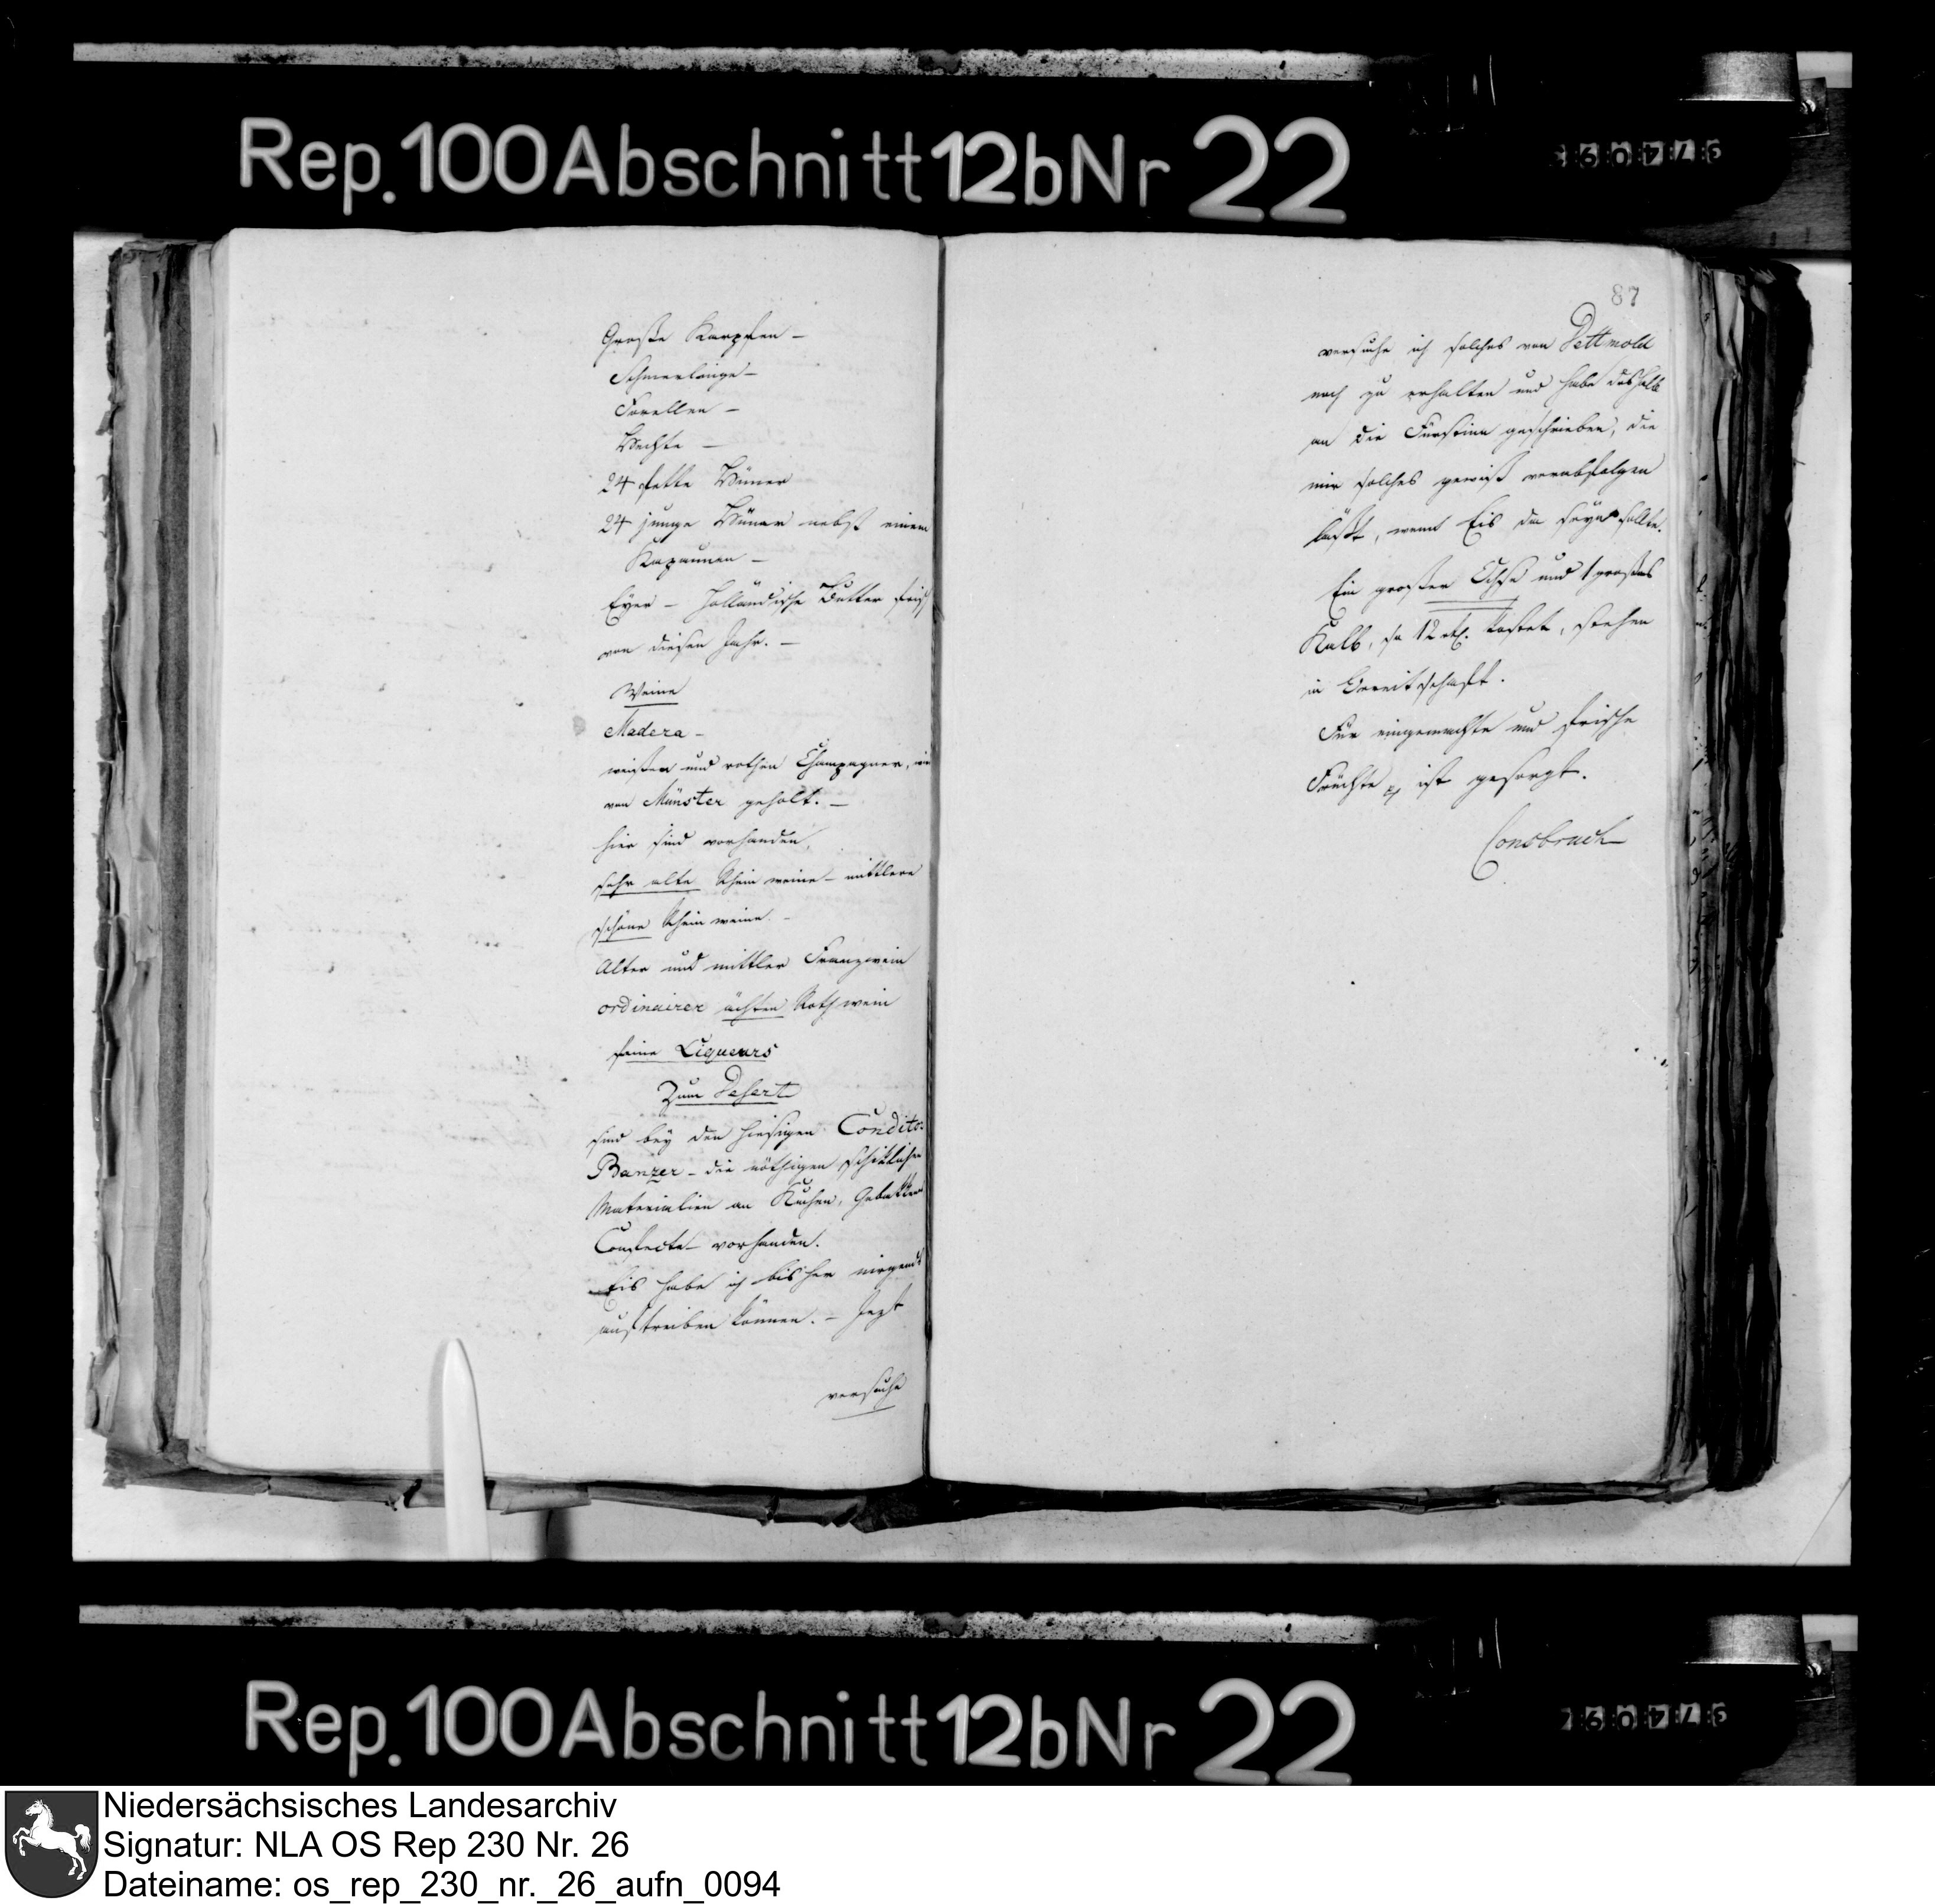 Rep. 100 Abschnitt 12b Nr 22
Große Karpfen –
Schmerlinge –
Forellen –
Hechte –
24 fette Hüner
24 junge Hüner nebst einem
Kapaunen –
Eyer – Holländische Butter frisch
von diesen Jahr. –
Weine
Madera –
weißen und rothen Champagner, wird
von Münster geholt. –
hier sind vorhanden,
sehr alte Rheinweine – mittlere
schöne Rheinweine. –
Alter und mittler Franzwein
ordinairer ächten Rothwein
feine Liqueurs
Zum Desert
sind bey den hiesigen Condito-
Banzer – die nöthigen schiklichen
Materialien an Kuchen, Gebakken
Confecte vorhanden.
Eis habe ich bisher nirgends
auftreiben können. – Jezt
versuche
87
versuche ich solches von Dettmold
noch zu erhalten und habe deshalb
an die Fürstinn geschrieben, die
mir solches gewiß verabfolgen
läßt, wenn Eis da seyn sollte.
Ein großer Ochse und 1 großes
Kalb, so 12 rt. kostet, stehen
in Bereitschaft.
Für eingemachte und frische
Früchte ist gesorgt.
Consbruch
Rep. 100 Abschnitt 12b Nr 22
Niedersächsisches Landesarchiv
Signatur: NLA OS Rep 230 Nr. 26
Dateiname: os_rep_230_nr._26_aufn_0094